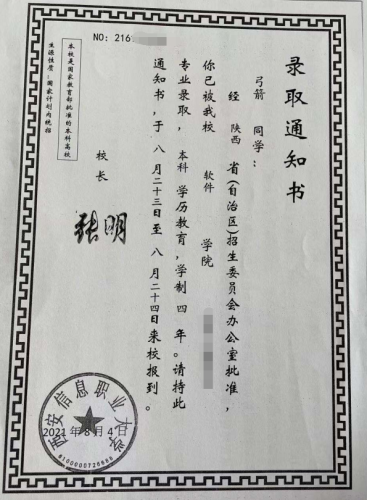 NO: 216
录取通知书
弓箭 同学：
经 陕西 省(自治区)招生委员会办公室批准，
你已被我校 软件 学院
专业录取， 本科 学历教育，学制 四 年。请持此
通知书，于 八 月二十三日至 八 月二十四日来校报到。
校长
张明
本校是国家教育部批准的本科高校
生源性质：国家计划内统招
西安信息职业大学
2021年8月4日